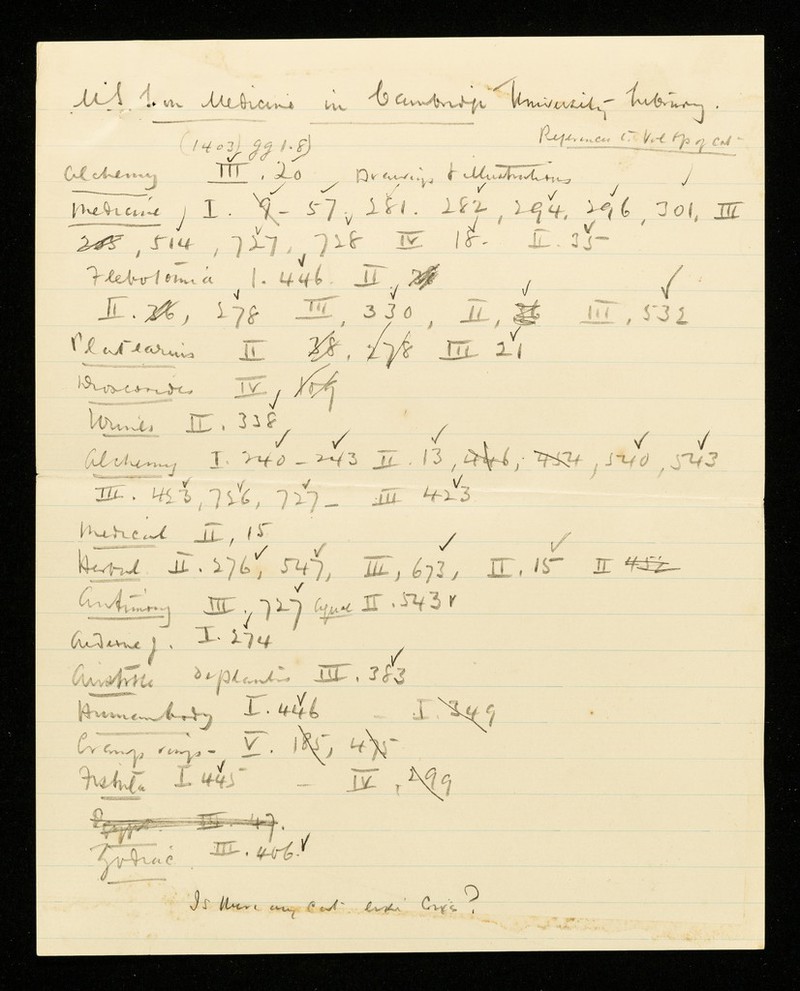 MSS. on Medicine in Cambridge University Library.
(1403) gg 1.8) References to Vol & p of cat
Alchemy III. 20 Drawings & illustrations
Medicine, I. 9 - 57, 281. 282, 294, 296, 301, III
205, 514, 727, 728 IV 18. II. 35
Flebotomia I. 446 II
II. 26, 278 III, 330, II, 36 III, 532
Platearius II 38, 278 III 21
Dioscorides IV, 109
Urines II. 338
Alchemy I. 240 - 243 II. 13, 446, 454, 540, 543
III. 423, 726, 727 - III 423
Medical II, 15
Herbal II. 276, 547, III, 673, II. 15 II 452
Antimony III, 727 II. 543
Arderne J. I. 274
Aristotle De plantis III. 383
Human body I. 446 - I. 349
Cramp rings - V. 185, 475
Fistula I 445 - IV, 299
Egypt III. 47.
Zodiac III. 406
Is there any cat